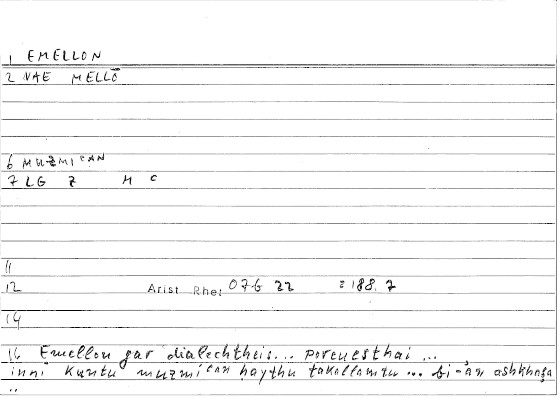 1 EMELLON
2 VAE MELLŌ
6 MUZMICAN
7 LG Z M C
11
12 Arist Rhet 076 22 = 188.7
14
16 Emellon gar dialechtheis... poreuesthai ...
inni kuntu muzmican ḥaythu takallamtu ... bi-an ashkhaṣa
..